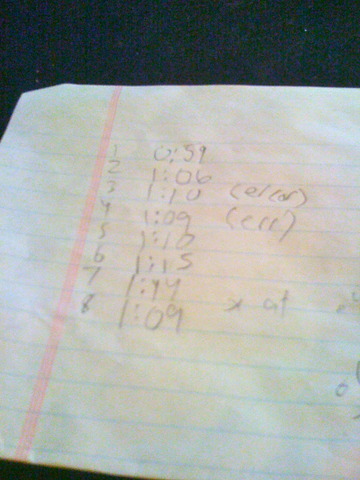 1 0:59
2 1:06
3 1:10 (error)
4 1:09 (err)
5 1:10
6 1:15
7 1:14
8 1:09 x at